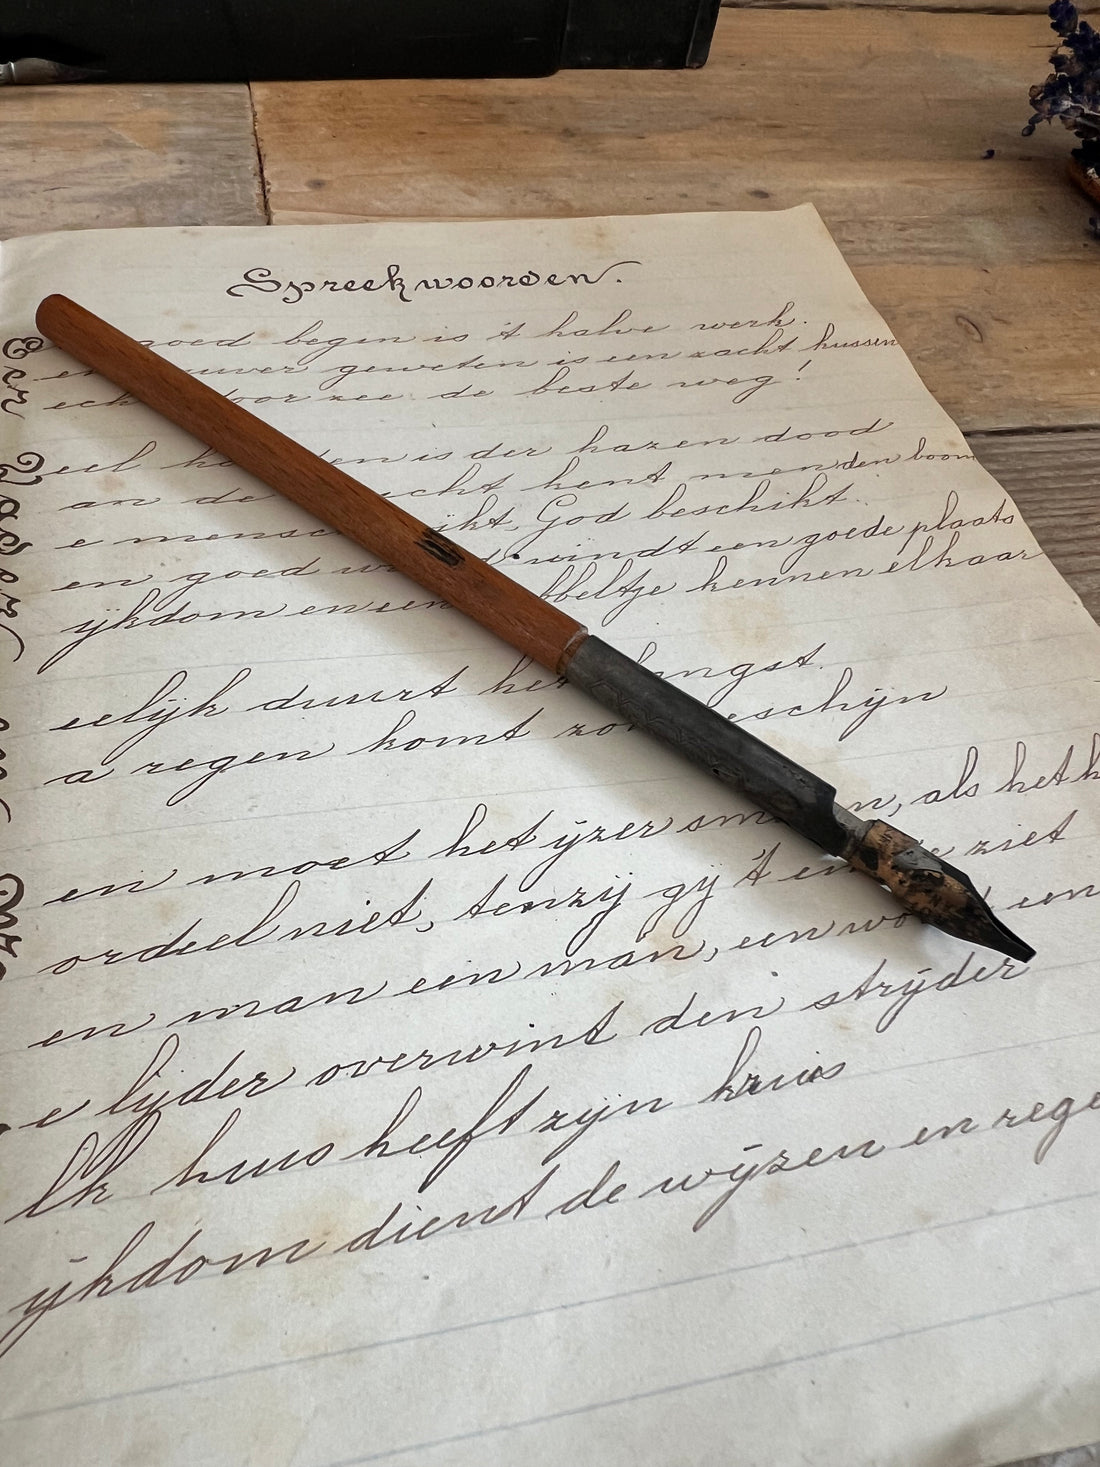 Spreekwoorden.
goed begin is 't halve werk.
geweten is een zacht kussen
door zee de beste weg!
eel is der hazen dood
an de kent men den boom
e mensch ikt, God beschikt.
en goed vindt een goede plaats
ijkdom en een bbeltje kennen elkaar
eelijk duurt het langst.
a regen komt zonneschijn
en moet het ijzer sm n, als het h
ordeel niet, tenzij gij 't en e ziet
en man een man, een wo een
e lijder overwint den strijder
lk huis heeft zijn kruis
ijkdom dient de wijzen en rege